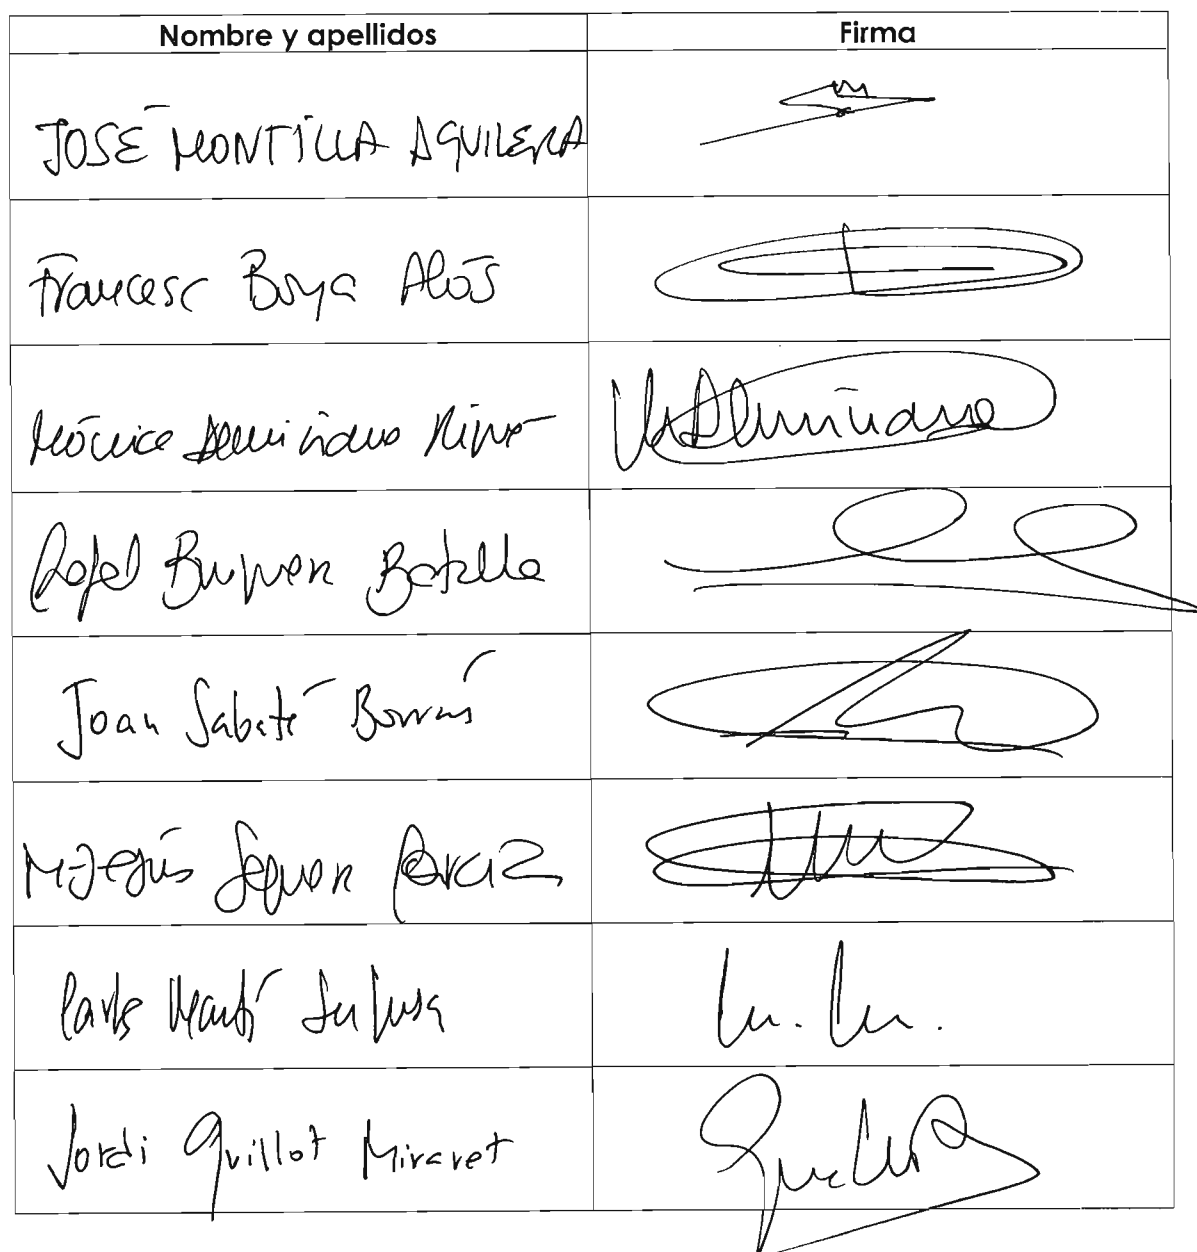 Nombre y apellidos Firma
JOSÉ MONTILLA AGUILERA
Francesc Boya Alós
Mónica Almiñana Riqué
Rafel Bruguera Batalla
Joan Sabaté Borràs
Mª Jesús Sequera García
Carles Martí Jufresa
Jordi Guillot Miravet